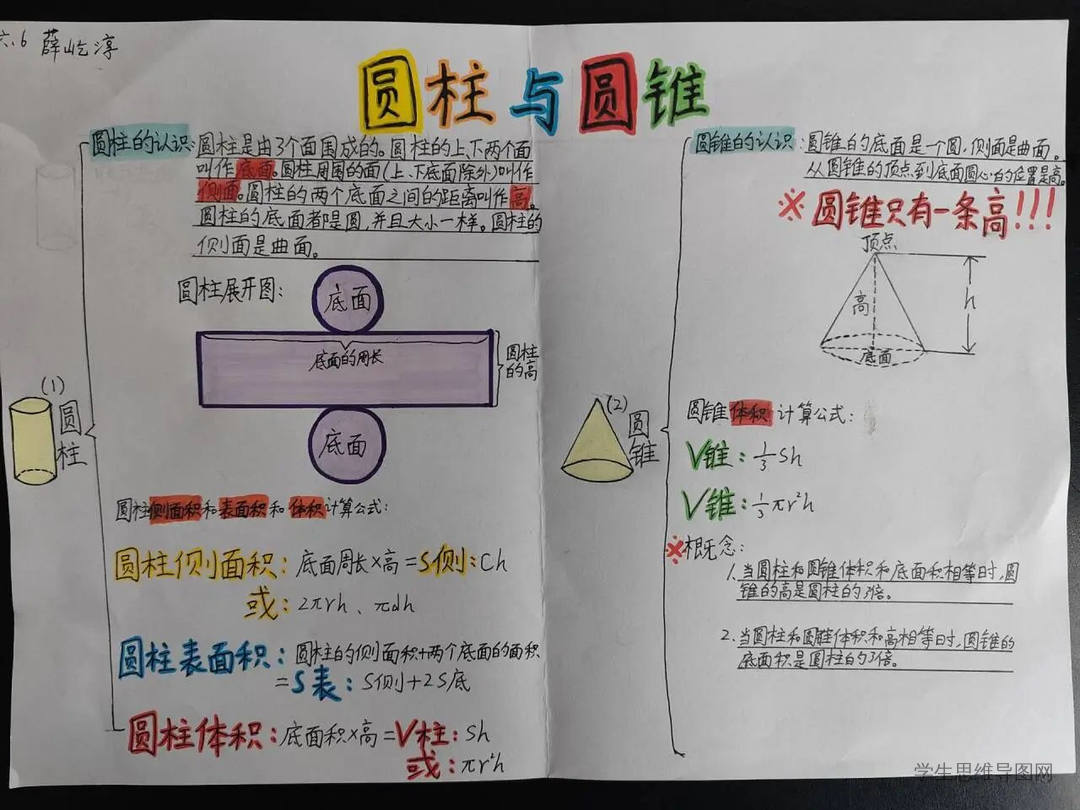 六.6 薛屹淳
圆柱与圆锥
圆柱的认识:圆柱是由3个面围成的。圆柱的上、下两个面
叫作底面。圆柱周围的面(上、下底面除外)叫作
侧面。圆柱的两个底面之间的距离叫作高。
圆柱的底面都是圆,并且大小一样。圆柱的
侧面是曲面。
圆柱展开图:
底面
底面的周长
圆柱
的高
底面
(1)
圆柱
圆柱侧面积和表面积和体积计算公式:
圆柱侧面积:底面周长×高=S侧:Ch
或:2πrh、πdh
圆柱表面积:圆柱的侧面积+两个底面的面积
=S表:S侧+2S底
圆柱体积:底面积×高=V柱:Sh
或:πr²h
圆锥的认识:圆锥的底面是一个圆,侧面是曲面。
从圆锥的顶点到底面圆心的位置是高。
※圆锥只有一条高!!!
顶点
高
h
底面
(2)
圆锥
圆锥体积计算公式:
V锥:1/3Sh
V锥:1/3πr²h
※概念:
1.当圆柱和圆锥体积和底面积相等时,圆
锥的高是圆柱的3倍。
2.当圆柱和圆锥体积和高相等时,圆锥的
底面积是圆柱的3倍。
学生思维导图网